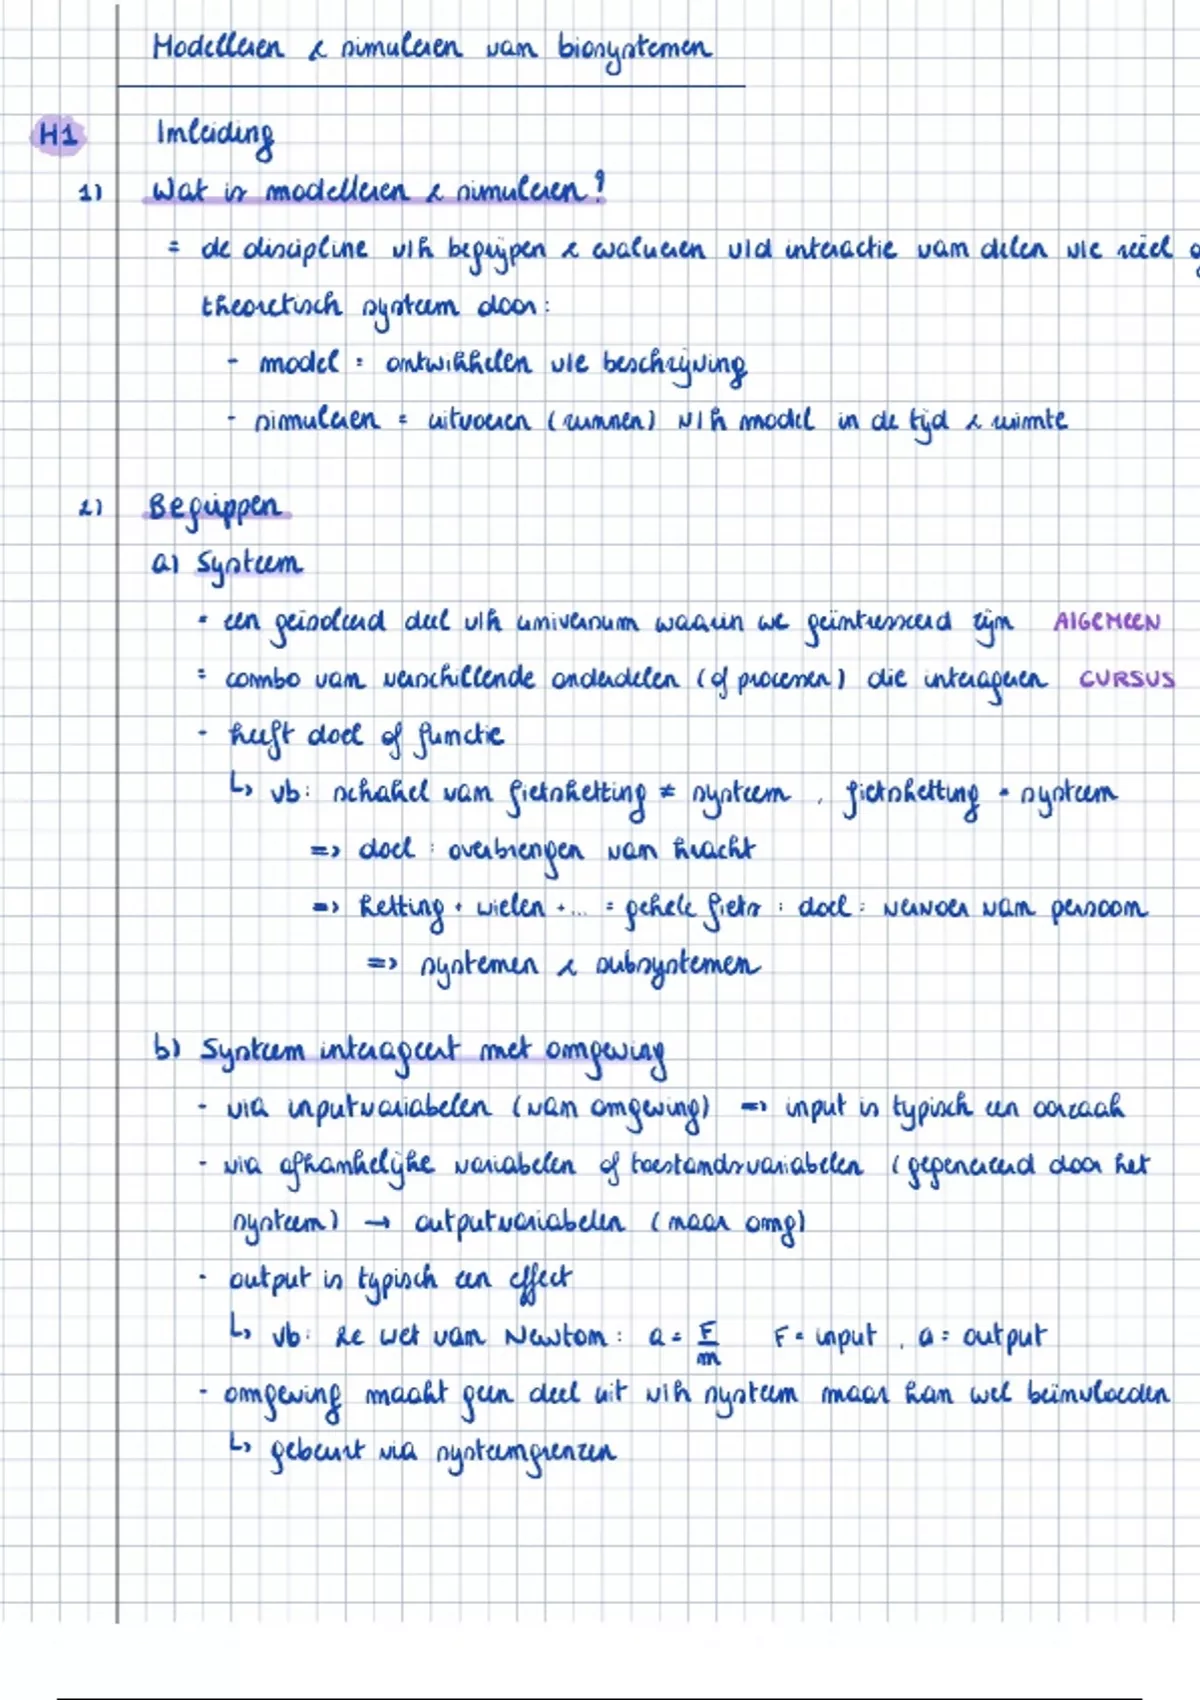 Modelleren & simuleren van biosystemen
H1 Inleiding
1) Wat is modelleren & simuleren?
= de discipline v/h begrijpen & evalueren v/d interactie van delen v/e reëel
theoretisch systeem door:
- model = ontwikkelen v/e beschrijving
- simuleren = uitvoeren (runnen) v/h model in de tijd & ruimte
2) Begrippen
a) Systeem
= een geïsoleerd deel v/h universum waarin we geïntresseerd zijn ALGEMEEN
= combo van verschillende onderdelen (of processen) die interageren CURSUS
- heeft doel of functie
↳ vb: schakel van fietsketting ≠ systeem, fietsketting = systeem
=> doel: overbrengen van kracht
=> ketting + wielen +... = gehele fiets: doel: vervoer van persoon
=> systemen & subsystemen
b) Systeem interageert met omgeving
- via inputvariabelen (van omgeving) => input is typisch een oorzaak
- via afhankelijke variabelen of toestandsvariabelen (gegenereerd door het
systeem) → outputvariabelen (naar omg)
- output is typisch een effect
↳ vb: 2e wet van Newton: a = F/m F = input, a = output
- omgeving maakt geen deel uit v/h systeem maar kan wel beïnvloeden
↳ gebeurt via systeemgrenzen